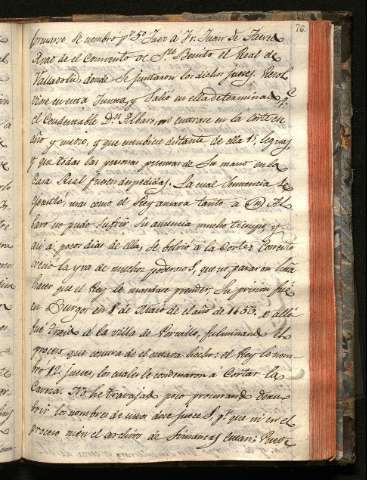 76.
formaron se nombro pr 5º Juez a Fr. Juan de
del Convento de Sn. Benito el Real de
Valladolid, donde Se juntaron los dichos Jueces
en esta Junta, y Salio en ella determinado, qe
el Condestable Dn. Albaro, no entrase en la Corte en
año y medio, y que estubiese distante de ella leguas
y que todas las personas puestas de Su mano en la
Casa Real fuesen despedidas. La cual Sentencia se
mas como el Rey amava tanto a Dn. Al-
baro no pudo sufrir Su ausencia mucho tiempo, y
asi a pocos dias de ella, se bolvio a la Corte.
crecio la yra de muchos poderosos, que no pararon hasta
hacer que el Rey le mandase prender, Su prision fue
en Burgos en de del año de 1453, y alli
fue traido a la villa de Portillo, fulminando el
proceso, que consta de el estarse hecho: el Rey le nom-
bro 12. jueces, los cuales le condenaron a Cortar la
Caveza. Yo he trabajado procurando descu-
brir los nombres de estos doce jueces, pr. que ni en el
proceso ni en el archivo de Simancas estan: